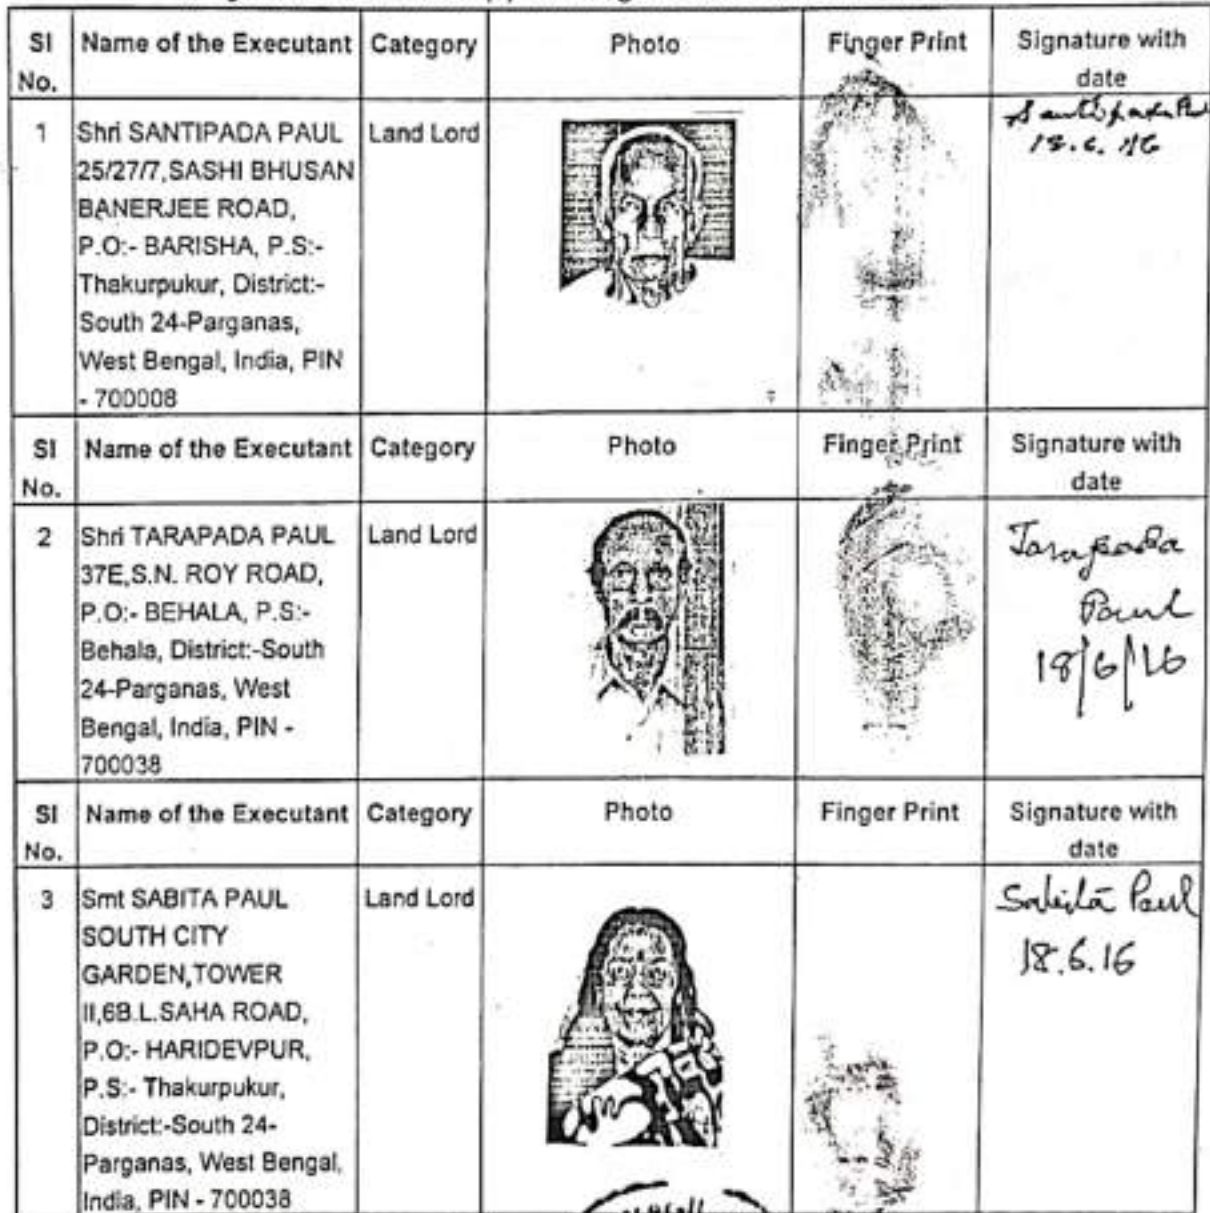 SI No. Name of the Executant Category Photo Finger Print Signature with date
1 Shri SANTIPADA PAUL Land Lord
25/27/7,SASHI BHUSAN
BANERJEE ROAD,
P.O:- BARISHA, P.S:-
Thakurpukur, District:-
South 24-Parganas,
West Bengal, India, PIN
- 700008
Santipada Paul
18.6.16
SI No. Name of the Executant Category Photo Finger Print Signature with date
2 Shri TARAPADA PAUL Land Lord
37E,S.N. ROY ROAD,
P.O:- BEHALA, P.S:-
Behala, District:-South
24-Parganas, West
Bengal, India, PIN -
700038
Tarapada
Paul
18/6/16
SI No. Name of the Executant Category Photo Finger Print Signature with date
3 Smt SABITA PAUL Land Lord
SOUTH CITY
GARDEN,TOWER
II,6B.L.SAHA ROAD,
P.O:- HARIDEVPUR,
P.S:- Thakurpukur,
District:-South 24-
Parganas, West Bengal,
India, PIN - 700038
Sabita Paul
18.6.16